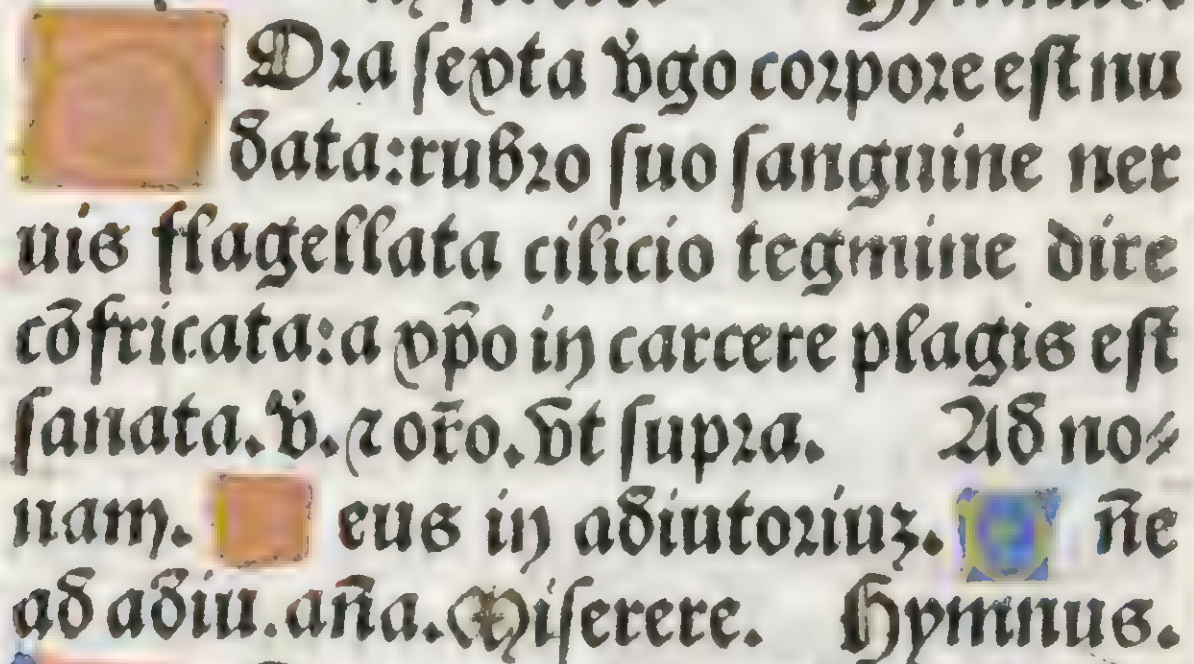 Ora sexta v̓go corpore est nu
data:rubro suo sanguine ner
uis flagellata cilicio tegmine dire
cōfricata:a xp̄o in carcere plagis est
sanata. v̓. ⁊ or̄o. vt supra. Ad no⸗
nam. Deus in adiutoriuꝫ. Dn̄e
ad adiu. an̄a. Miserere. Hymnus.